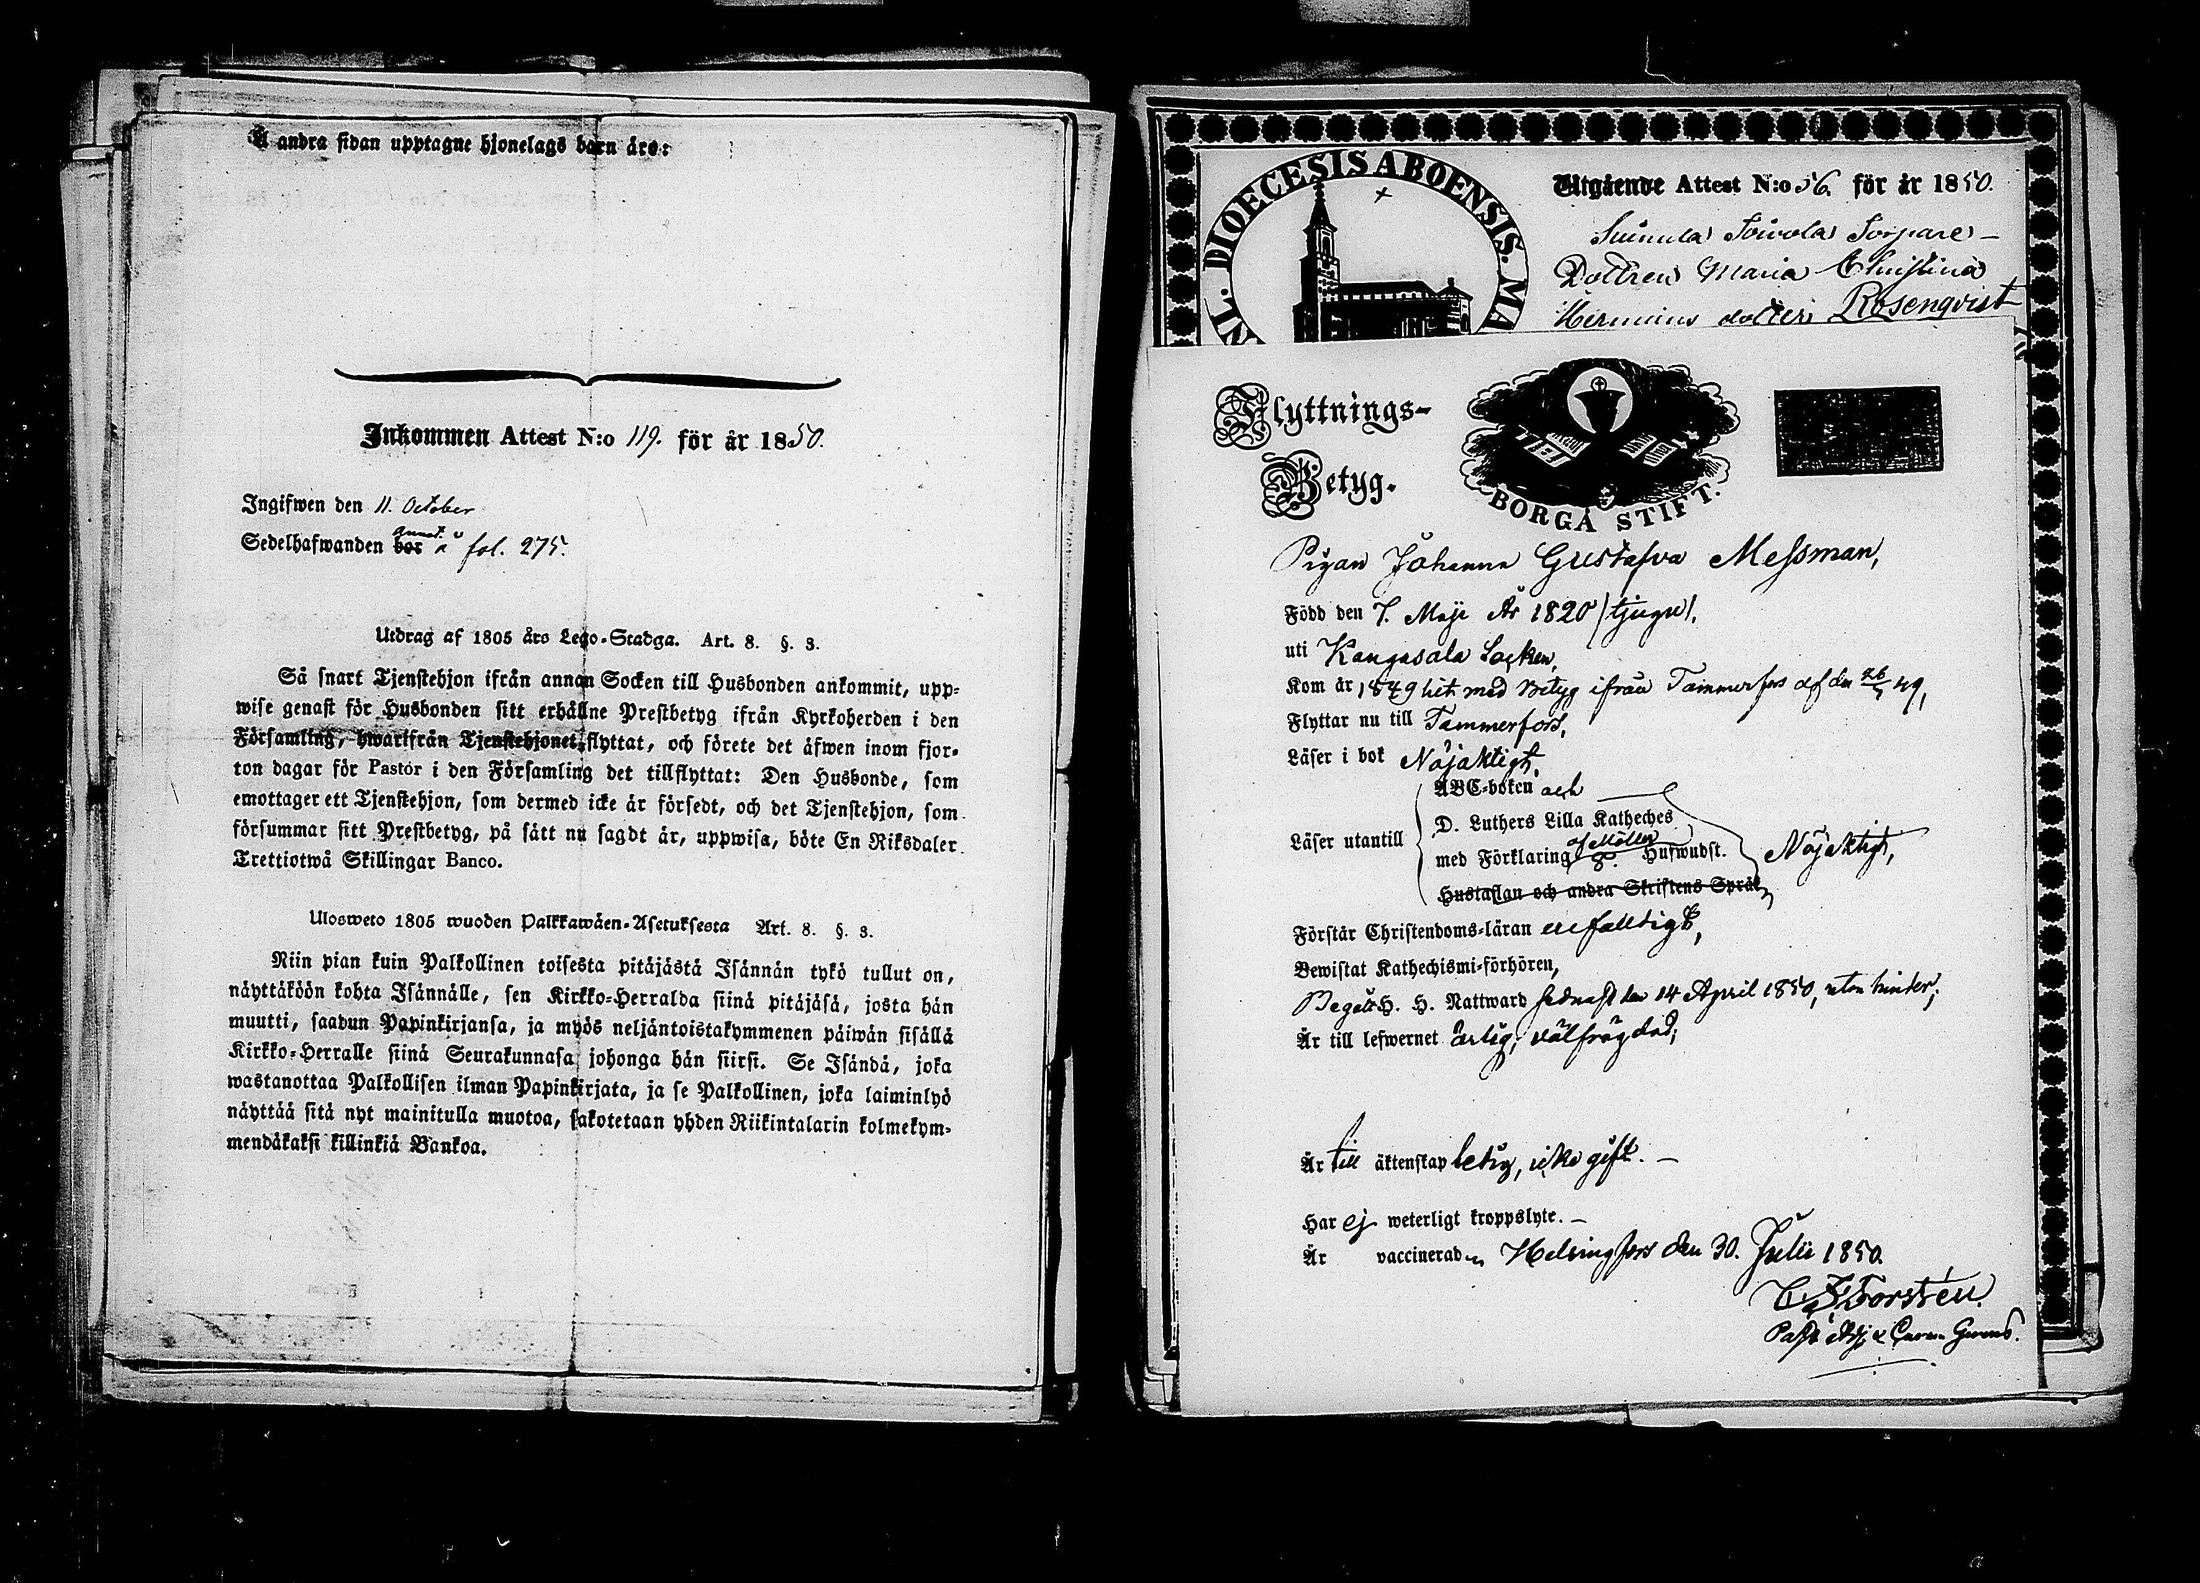 Å andra sidan upptagne hjonelags barn äro:
Inkommen Attest N:o 119. för år 1850.
Ingifwen den 11. October
Sedelhafwanden bor annot. å fol. 275.
Utdrag af 1805 års Lego-Stadga. Art. 8. §. 3.
Så snart Tjenstehjon ifrån annan Socken till Husbonden ankommit, upp-
wise genast för Husbonden sitt erhållne Prestbetyg ifrån Kyrkoherden i den
Församling, hwarifrån Tjenstehjonet flyttat, och förete det äfwen inom fjor-
ton dagar för Pastor i den Församling det tillflyttat: Den Husbonde, som
emottager ett Tjenstehjon, som dermed icke är försedt, och det Tjenstehjon, som
försummar sitt Prestbetyg, på sätt nu sagdt är, uppwisa, böte En Riksdaler
Trettiotwå Skillingar Banco.
Ulosweto 1805 wuoden Palkkawäen-Asetuksesta Art. 8. §. 3.
Niin pian kuin Palkollinen toisesta pitäjästä Isännän tykö tullut on,
näyttäköön kohta Isännälle, sen Kirkko-Herralda siinä pitäjäsä, josta hän
muutti, saadun Papinkirjansa, ja myös neljäntoistakymmenen päiwän sisällä
Kirkko-Herralle siinä Seurakunnasa johonga hän siirsi. Se Isändä, joka
wastanottaa Palkollisen ilman Papinkirjata, ja se Palkollinen, joka laiminlyö
näyttää sitä nyt mainitulla muotoa, sakotetaan yhden Riikintalarin kolmekym-
mendäkaksi killinkiä Bankoa.
DIOECESIS ABOENSIS. MA
Utgående Attest N:o 56. för år 1850.
Torpare-
Dottren Maria Christina
Hermans dotter Rosenqvist
Flyttnings-
Betyg.
BORGÅ STIFT.
Pigan Johanna Gustafva Messman,
Född den 7. Maji År 1820 /tjugu/.
uti Kangasala Socken,
Kom år 1849 hit med Betyg ifrån Tammerfors af den 26/7 49,
Flyttar nu till Tammerfors,
Läser i bok Nöjaktigt,
ABC-boken och
D. Luthers Lilla Katheches
Läser utantill
med Förklaring af Möller o. Hufwudst. Nöjaktigt,
Hustaflan och andra Skriftens Språk
Förstår Christendoms-läran enfalldigt,
Bewistat Kathechismi-förhören,
Begått H. H. Nattward sednast den 14 April 1850, utan hinder;
Är till lefwernet ärlig, välfrägdad;
Är till äktenskap ledig, icke gift. -
Har ej weterligt kroppslyte. -
Är vaccinerad, Helsingfors den 30. Julii 1850.
Forstén.